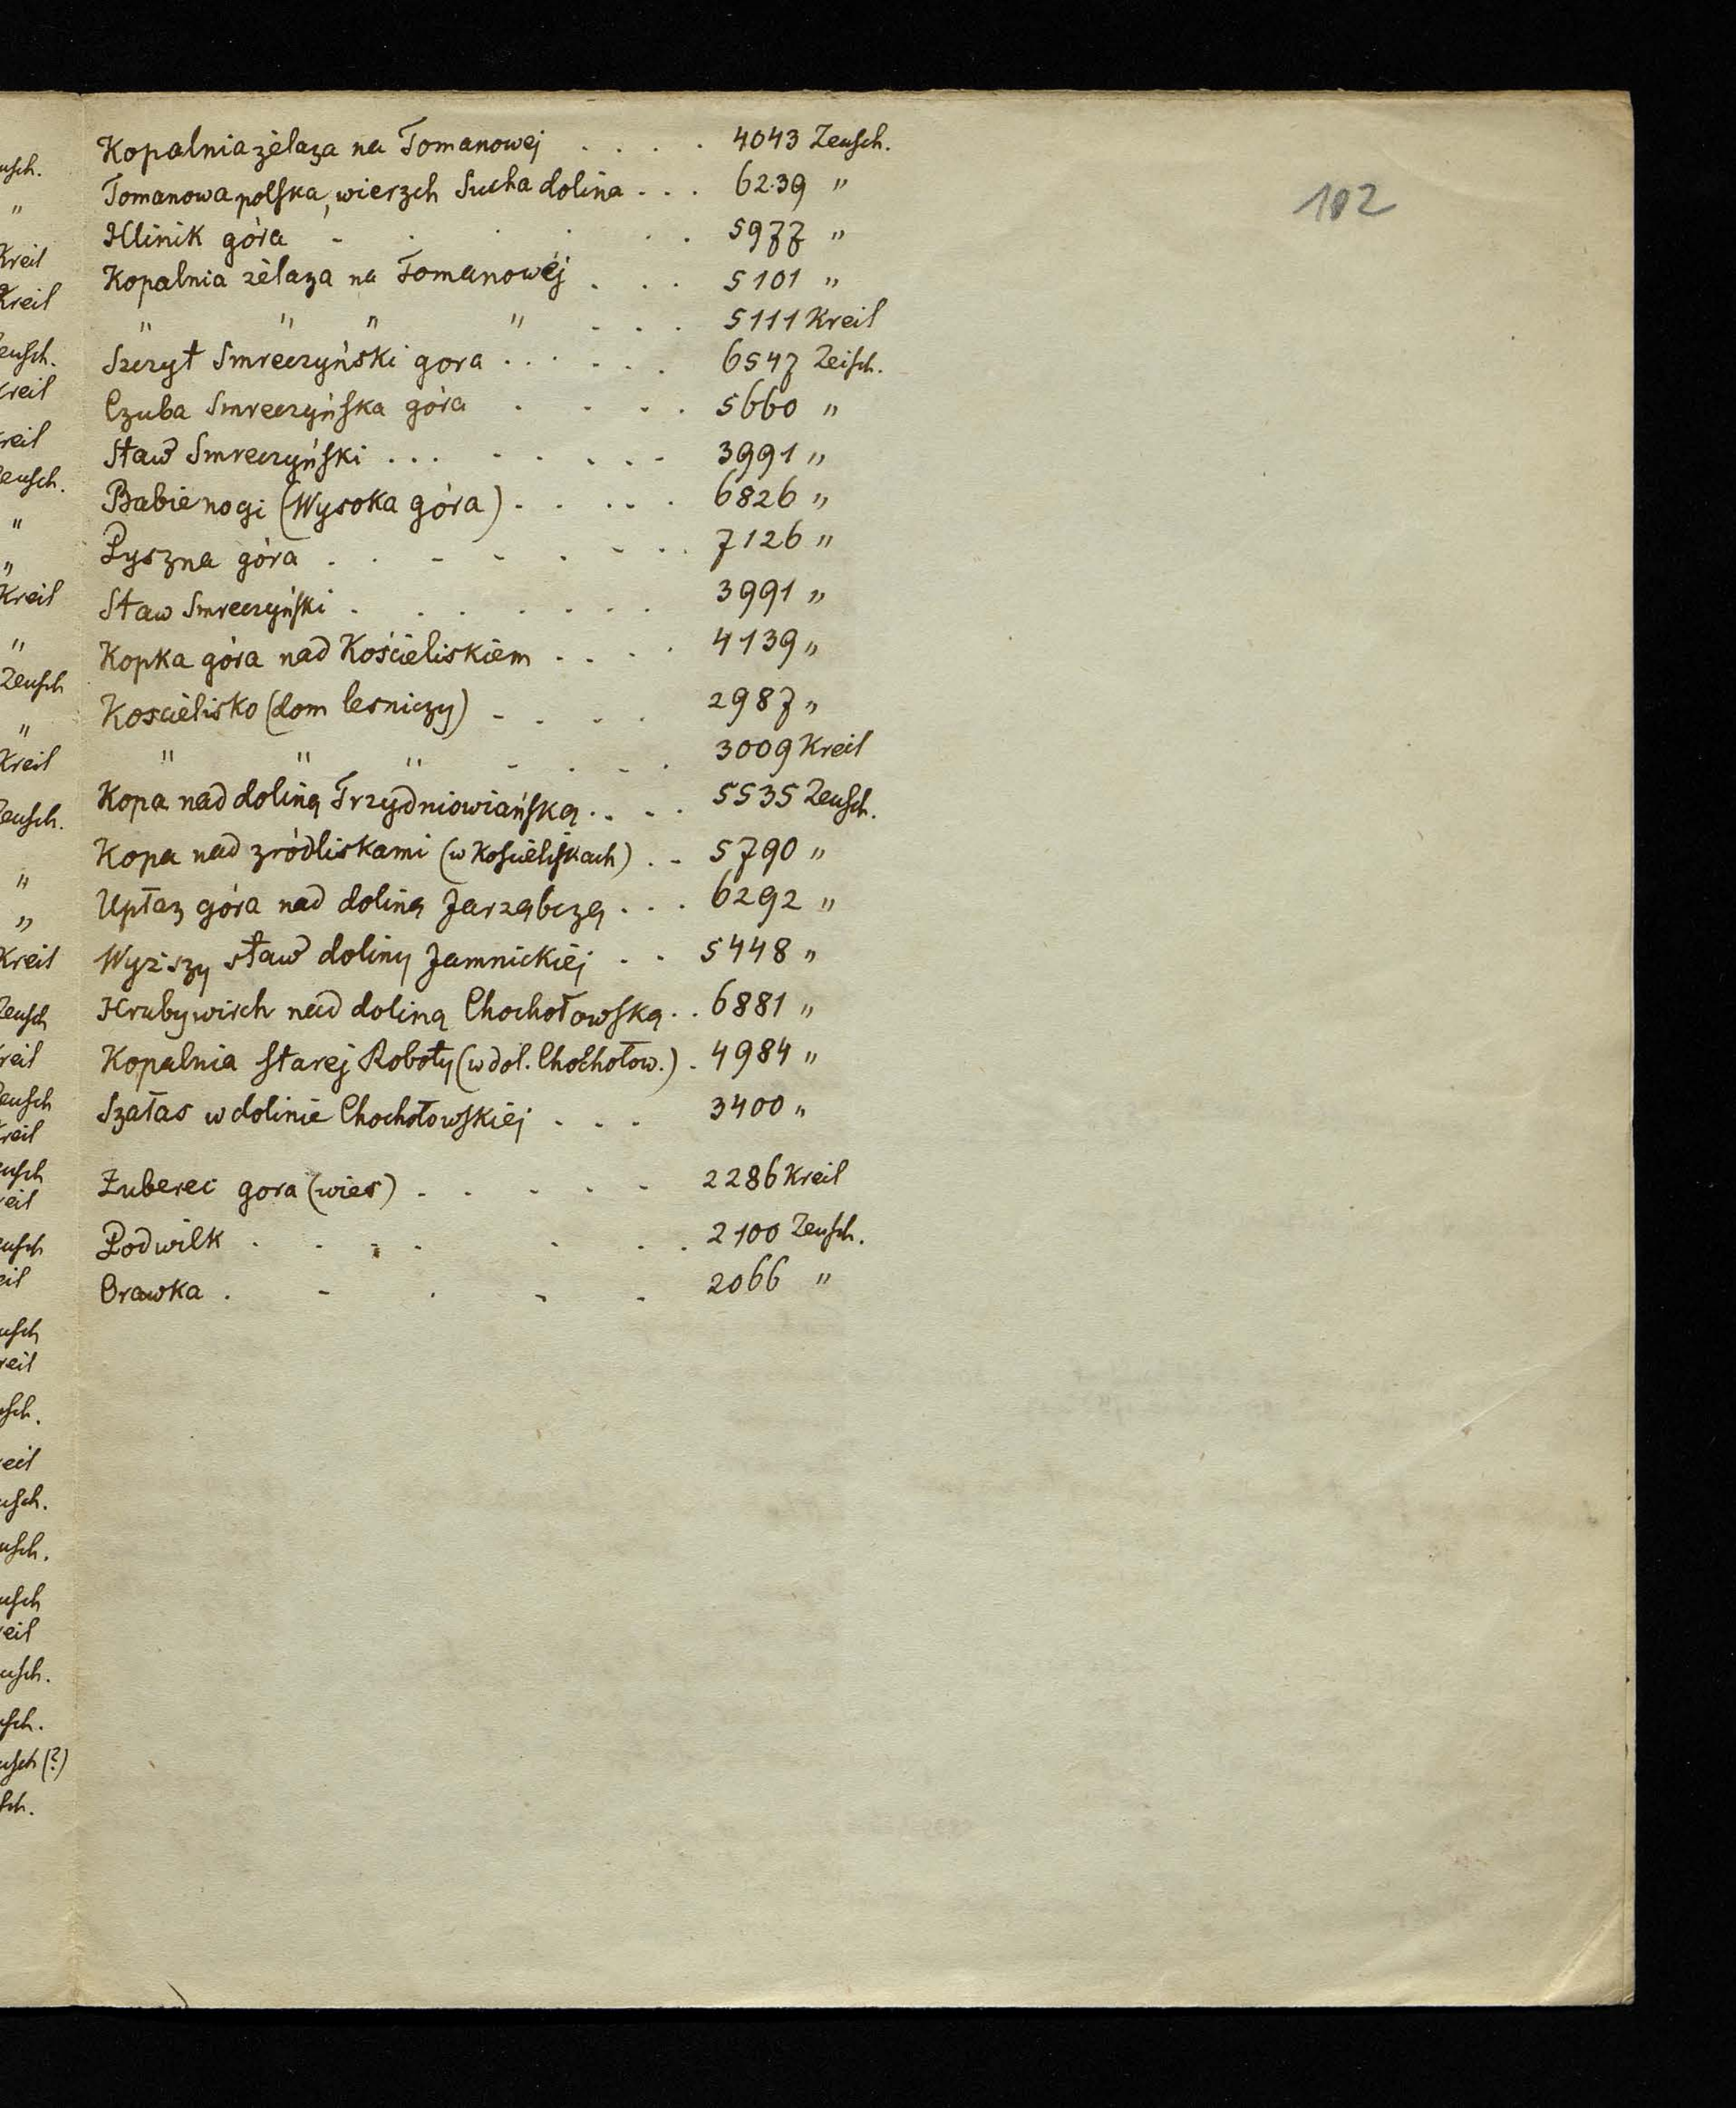 102
Kopalnia żelaza na Tomanowej . . . . 4043 Zeusch.
Tomanowa polska, wierzch Sucha dolina . . . 6239 "
Hlinik góra - . . . . . 5977 "
Kopalnia żelaza na Tomanowéj . . . 5101 "
" " " " . . . 5111 Kreil
Szczyt Smreczyński gora . . . . . 6547 Zeisch.
Czuba Smreczyńska góra . . . . 5660 "
Staw Smreczyński . . . . . . . . 3991 "
Babie nogi (Wysoka góra) . . . . . 6826 "
Pyszna góra . . . . . . . . 7126 "
Staw Smreczyński . . . . . . . 3991 "
Kopka góra nad Kościeliskiem . . . . 4139 "
Koscielisko (dom lesniczy) . . . . 2987 "
" " " . . . . 3009 Kreil
Kopa nad doliną Trzydniowiańską . . . . 5535 Zeusch.
Kopa nad zródliskami (w Kościeliskach) . . 5790 "
Upłaz góra nad doliną Jarząbczą . . . 6292 "
Wyższy staw doliny Jamnickiej . . 5448 "
Hruby wirch nad doliną Chochołowską . . 6881 "
Kopalnia starej Roboty (w dol. Chochołow.) . 4984 "
Szałas w dolinie Chochołowskiej . . . 3400 "
Zuberec gora (wies) . . . . . 2286 Kreil
Podwilk . . . . . . . 2100 Zeusch.
Orawka . - . . . 2066 "